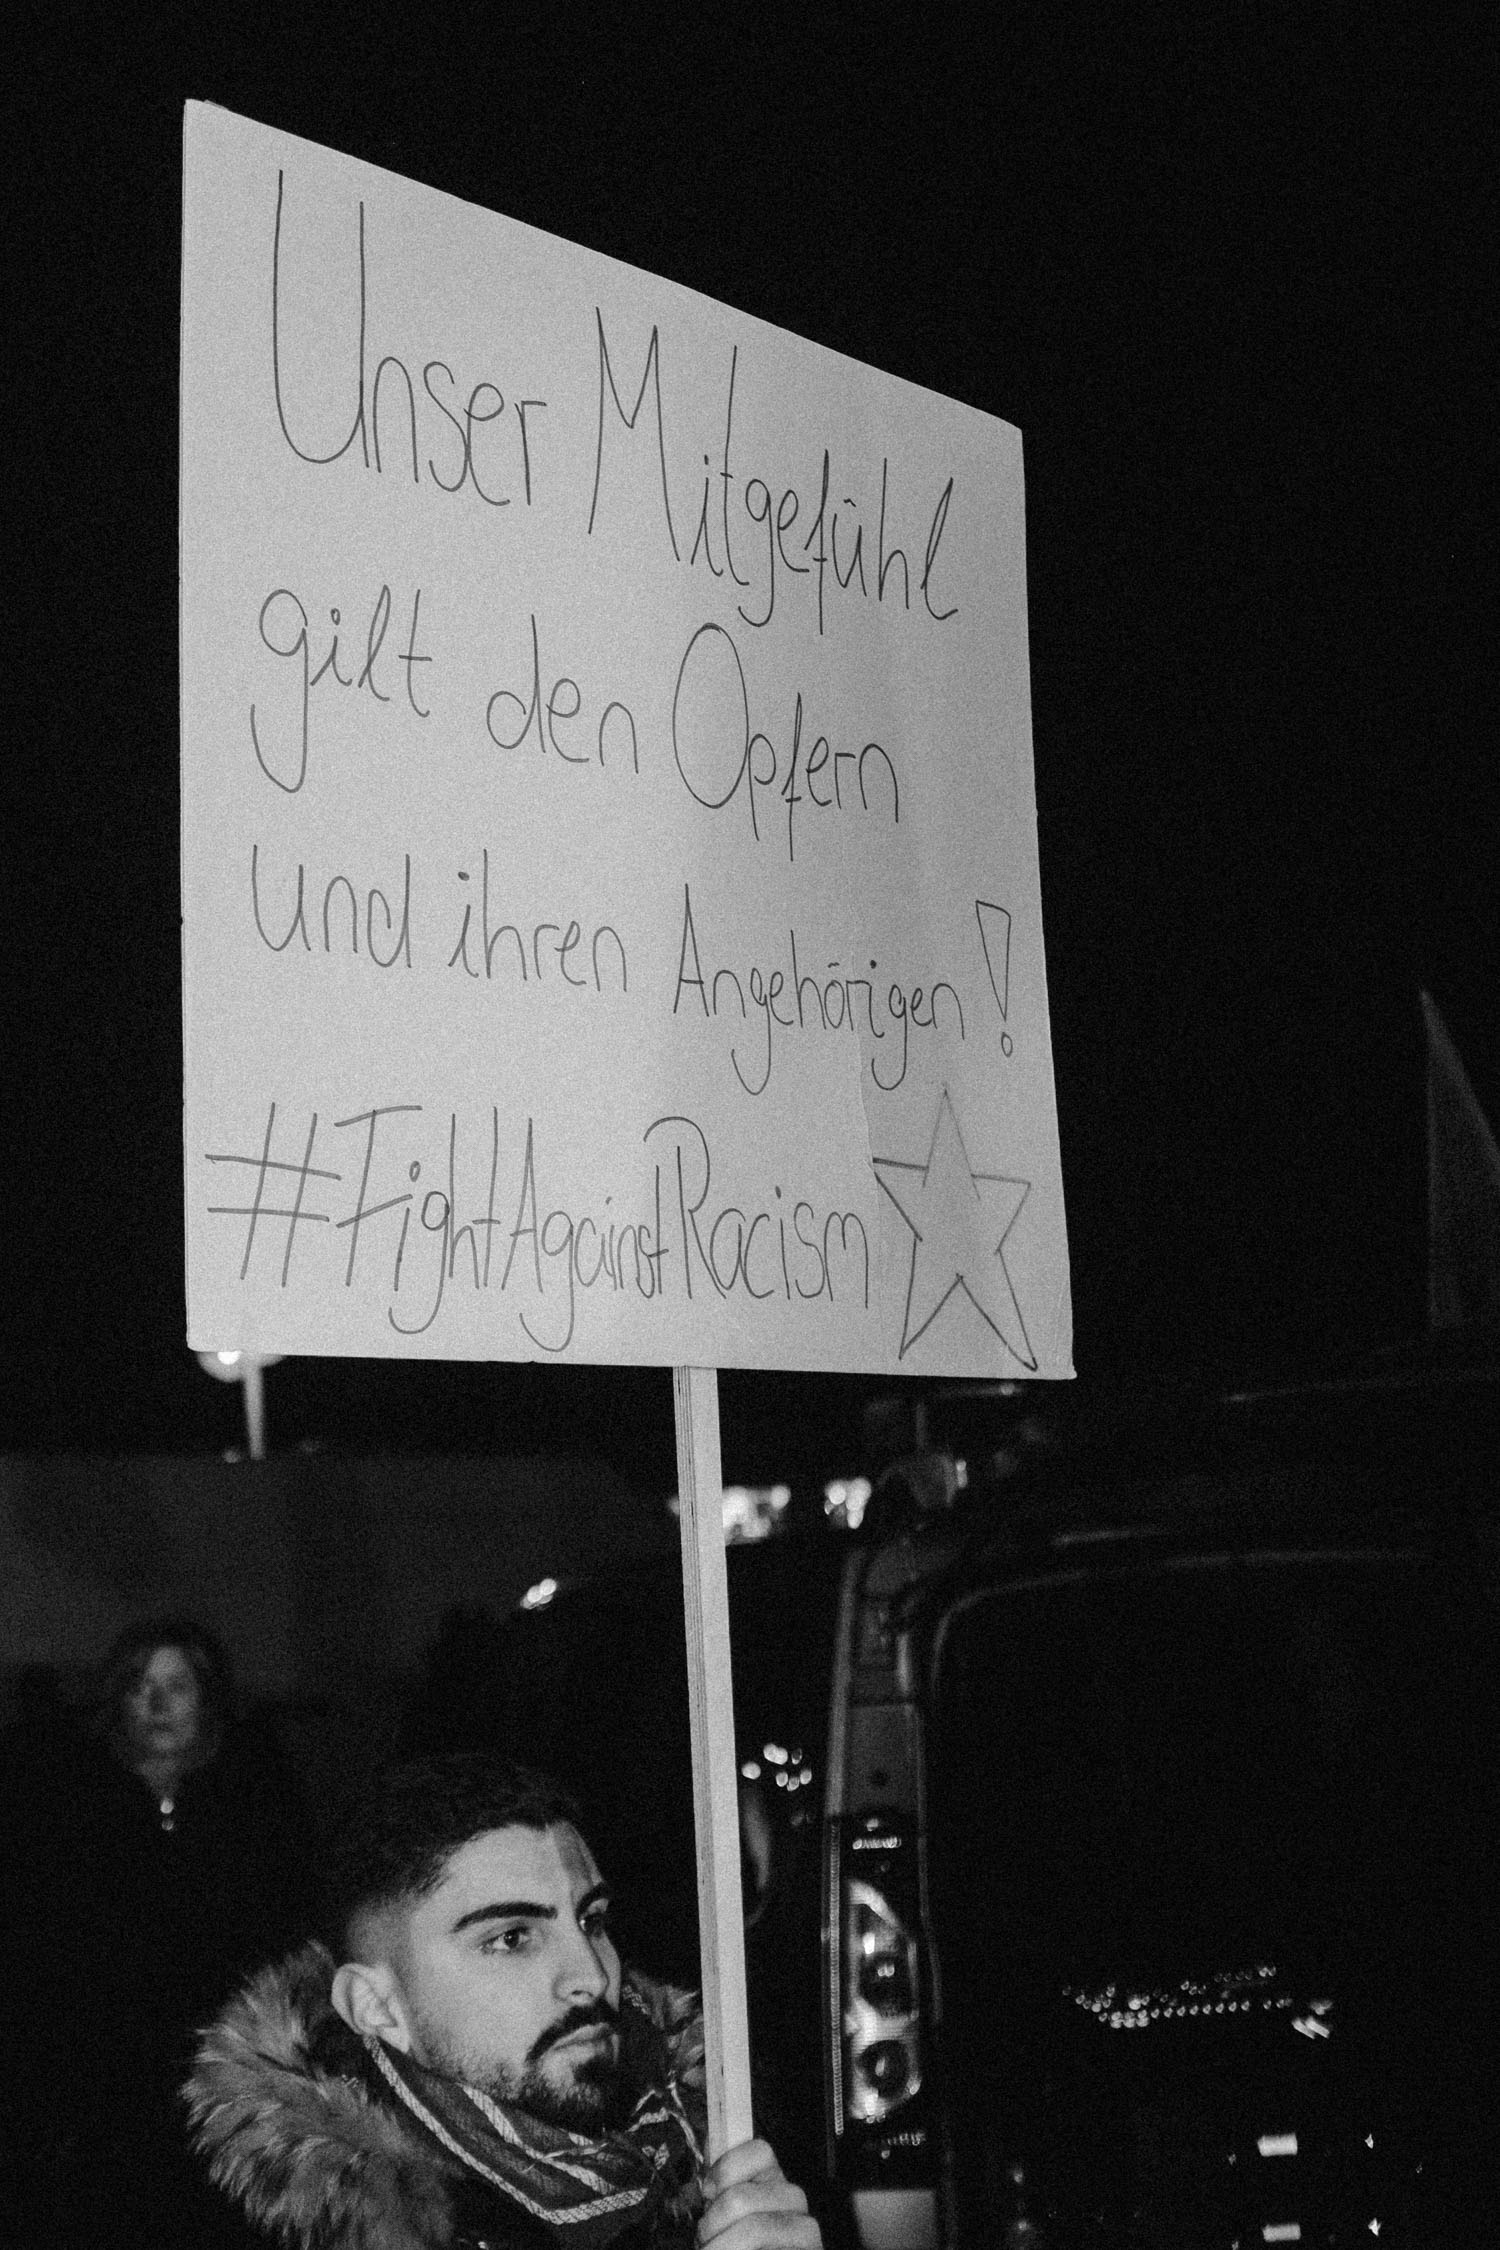 Unser Mitgefühl
gilt den Opfern
und ihren Angehörigen!
#FightAgainstRacism